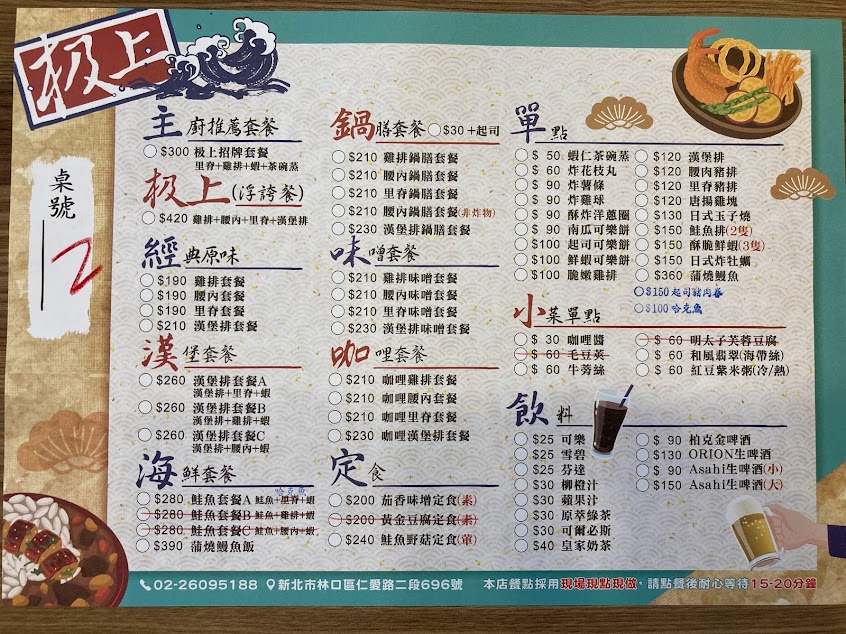 极上
桌號
12
主廚推薦套餐
$300 极上招牌套餐
里脊+雞排+蝦+茶碗蒸
极上(浮誇餐)
$420 雞排+腰內+里脊+漢堡排
經典原味
$190 雞排套餐
$190 腰內套餐
$190 里脊套餐
$210 漢堡排套餐
漢堡套餐
$260 漢堡排套餐A
漢堡排+里脊+蝦
$260 漢堡排套餐B
漢堡排+雞排+蝦
$260 漢堡排套餐C
漢堡排+腰內+蝦
海鮮套餐
哈克魚
$280 鮭魚套餐A 鮭魚+里脊+蝦
$280 鮭魚套餐B 鮭魚+雞排+蝦
$280 鮭魚套餐C 鮭魚+腰內+蝦
$390 蒲燒鰻魚飯
鍋膳套餐 $30+起司
$210 雞排鍋膳套餐
$210 腰內鍋膳套餐
$210 里脊鍋膳套餐
$210 腰內鍋膳套餐(非炸物)
$230 漢堡排鍋膳套餐
味噌套餐
$210 雞排味噌套餐
$210 腰內味噌套餐
$210 里脊味噌套餐
$230 漢堡排味噌套餐
咖哩套餐
$210 咖哩雞排套餐
$210 咖哩腰內套餐
$210 咖哩里脊套餐
$230 咖哩漢堡排套餐
定食
$200 茄香味增定食(素)
$200 黃金豆腐定食(素)
$240 鮭魚野菇定食(葷)
單點
$ 50 蝦仁茶碗蒸
$ 60 炸花枝丸
$ 90 炸薯條
$ 90 炸雞球
$ 90 酥炸洋蔥圈
$ 90 南瓜可樂餅
$100 起司可樂餅
$100 鮮蝦可樂餅
$100 脆嫩雞排
$120 漢堡排
$120 腰肉豬排
$120 里脊豬排
$120 唐揚雞塊
$130 日式玉子燒
$150 鮭魚排(2隻)
$150 酥脆鮮蝦(3隻)
$150 日式炸牡蠣
$360 蒲燒鰻魚
$150 起司豬肉卷
$100 哈克魚
小菜單點
$ 30 咖哩醬
$ 60 毛豆莢
$ 60 牛蒡絲
$ 60 明太子芙蓉豆腐
$ 60 和風翡翠(海帶絲)
$ 60 紅豆紫米粥(冷/熱)
飲料
$25 可樂
$25 雪碧
$25 芬達
$30 柳橙汁
$30 蘋果汁
$30 原萃綠茶
$30 可爾必斯
$40 皇家奶茶
$ 90 柏克金啤酒
$130 ORION生啤酒
$ 90 Asahi生啤酒(小)
$150 Asahi生啤酒(大)
02-26095188 新北市林口區仁愛路二段696號 本店餐點採用現場現點現做，請點餐後耐心等待15-20分鐘